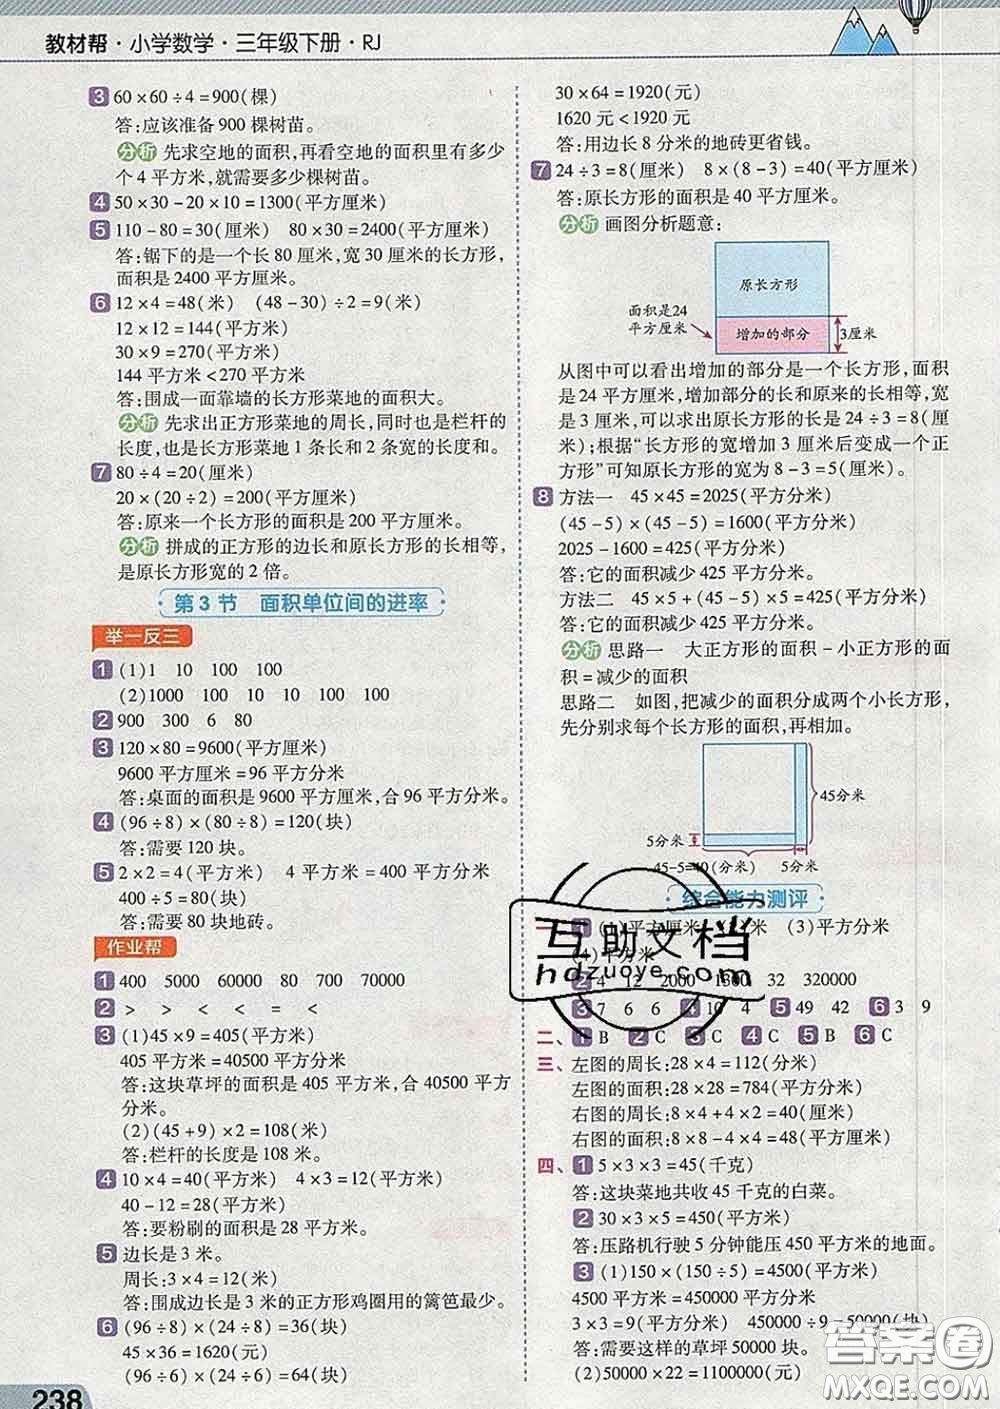 教材帮·小学数学·三年级下册·RJ
3 60×60÷4=900(棵)
答:应该准备 900 棵树苗。
分析 先求空地的面积,再看空地的面积里有多少
个 4 平方米,就需要多少棵树苗。
4 50×30-20×10=1300(平方厘米)
5 110-80=30(厘米)  80×30=2400(平方厘米)
答:锯下的是一个长 80 厘米,宽 30 厘米的长方形,
面积是 2400 平方厘米。
6 12×4=48(米)  (48-30)÷2=9(米)
12×12=144(平方米)
30×9=270(平方米)
144 平方米<270 平方米
答:围成一面靠墙的长方形菜地的面积大。
分析 先求出正方形菜地的周长,同时也是栏杆的
长度,也是长方形菜地 1 条长和 2 条宽的长度和。
7 80÷4=20(厘米)
20×(20÷2)=200(平方厘米)
答:原来一个长方形的面积是 200 平方厘米。
分析 拼成的正方形的边长和原长方形的长相等,
是原长方形宽的 2 倍。
第 3 节 面积单位间的进率
举一反三
1 (1)1 10 100 100
(2)1000 100 10 10 100 100
2 900 300 6 80
3 120×80=9600(平方厘米)
9600 平方厘米=96 平方分米
答:桌面的面积是 9600 平方厘米,合 96 平方分米。
4 (96÷8)×(80÷8)=120(块)
答:需要 120 块。
5 2×2=4(平方米)  4 平方米=400 平方分米
400÷5=80(块)
答:需要 80 块地砖。
作业帮
1 400 5000 60000 80 700 70000
2 > > < = <
3 (1)45×9=405(平方米)
405 平方米=40500 平方分米
答:这块草坪的面积是 405 平方米,合 40500 平方
分米。
(2)(45+9)×2=108(米)
答:栏杆的长度是 108 米。
4 10×4=40(平方米)  4×3=12(平方米)
40-12=28(平方米)
答:要粉刷的面积是 28 平方米。
5 边长是 3 米。
周长:3×4=12(米)
答:围成边长是 3 米的正方形鸡圈用的篱笆最少。
6 (96÷8)×(24÷8)=36(块)
45×36=1620(元)
(96÷6)×(24÷6)=64(块)
238
30×64=1920(元)
1620 元<1920 元
答:用边长 8 分米的地砖更省钱。
7 24÷3=8(厘米)  8×(8-3)=40(平方厘米)
答:原长方形的面积是 40 平方厘米。
分析 画图分析题意:
原长方形
面积是24
平方厘米
增加的部分
3厘米
从图中可以看出增加的部分是一个长方形,面积
是 24 平方厘米,增加部分的长和原来的长相等,宽
是 3 厘米,可以求出原长方形的长是 24÷3=8(厘
米);根据“长方形的宽增加 3 厘米后变成一个正
方形”可知原长方形的宽为 8-3=5(厘米)。
8 方法一 45×45=2025(平方分米)
(45-5)×(45-5)=1600(平方分米)
2025-1600=425(平方分米)
答:它的面积减少 425 平方分米。
方法二 45×5+(45-5)×5=425(平方分米)
答:它的面积减少 425 平方分米。
分析 思路一 大正方形的面积-小正方形的面
积=减少的面积
思路二 如图,把减少的面积分成两个小长方形,
先分别求每个长方形的面积,再相加。
45分米
5分米
45-5=40(分米) 5分米
综合能力测评
一、1 (1)平方厘米 (2)米 (3)平方分米
(4)平方米
2 4 12 2000 1300 32 320000
3 7 6 6 4 10 4 5 49 42 6 3 9
二、1 B 2 C 3 C 4 C 5 B 6 C
三、左图的周长:28×4=112(分米)
左图的面积:28×28=784(平方分米)
右图的周长:8×4+4×2=40(厘米)
右图的面积:8×8-4×4=48(平方厘米)
四、1 5×3×3=45(千克)
答:这块菜地共收 45 千克的白菜。
2 30×3×5=450(平方米)
答:压路机行驶 5 分钟能压 450 平方米的地面。
3 (1)150×(150÷5)=4500(平方米)
4500 平方米=450000 平方分米
3×3=9(平方分米)  450000÷9=50000(块)
答:需要这样的草坪 50000 块。
(2)50000×22=1100000(元)
互助文档
hdzuoye.com
答案圈
MXQE.COM